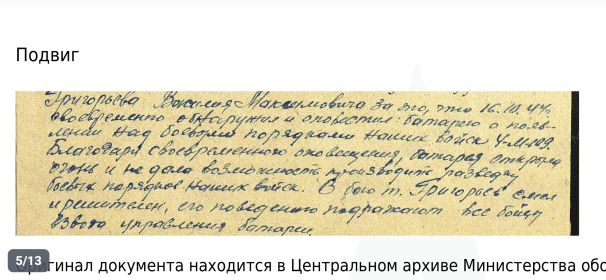 Подвиг
Григорьева Василия Максимовича за то, что 16.10.44г.
своевременно обнаружил и оповестил батарею о появ-
лении над боевыми порядками наших войск 4-М-109.
Благодаря своевременного оповещения, батарея открыла
огонь и не дала возможность производить разведку
боевых порядков наших войск. В бою т. Григорьев смел
и решителен, его поведению подражают все бойцы
взвода управления батареи.
5/13
Оригинал документа находится в Центральном архиве Министерства обо